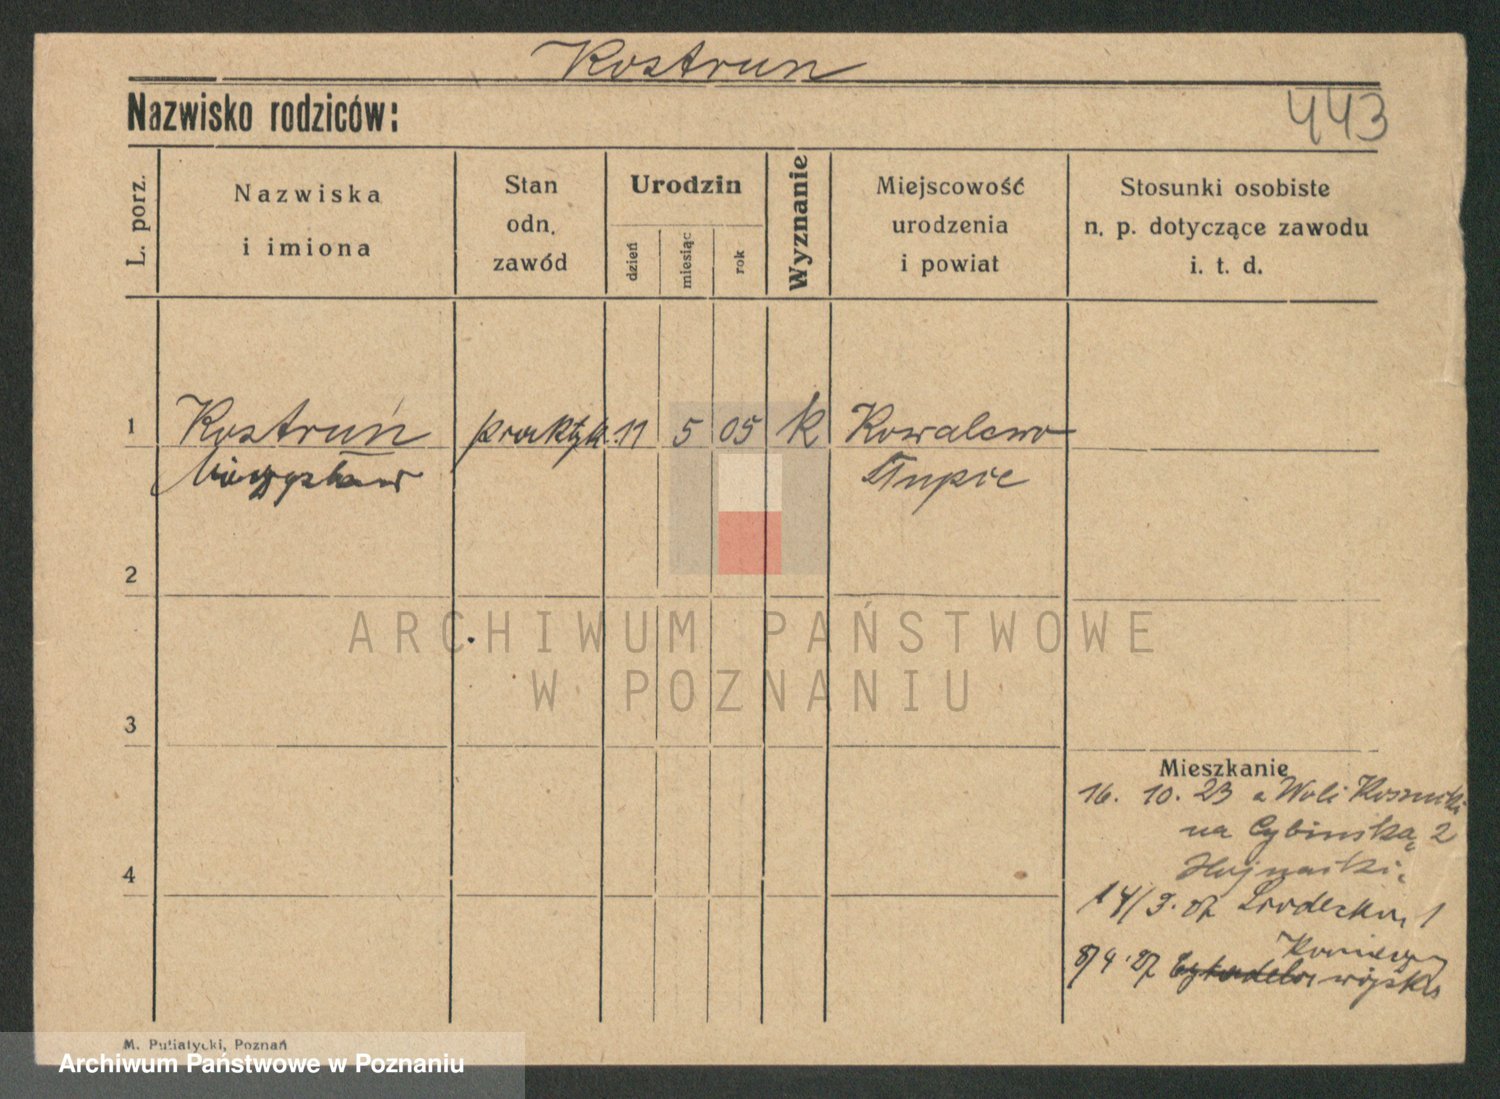 Kostrun
Nazwisko rodziców:
443
L. porz.
Nazwiska
i imiona
Stan
odn.
zawód
Urodzin
dzień
miesiąc
rok
Wyznanie
Miejscowość
urodzenia
i powiat
Stosunki osobiste
n. p. dotyczące zawodu
i. t. d.
1 Kostruń praktyk. 11 5 05 k Kowalewo
Mieczysław Słupie
2
ARCHIWUM PAŃSTWOWE
W POZNANIU
3
Mieszkanie
16. 10. 23 a Woli
na Cybińską 2
4
14/ 1
8/4.27 wojsko
M. Putiatycki, Poznań
Archiwum Państwowe w Poznaniu